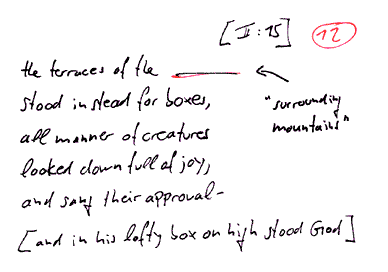 [II:15] 12
the terraces of the
stood instead for boxes,
"surrounding
mountains"
all manner of creatures
looked down full of joy,
and sang their approval-
[and in his lofty box on high stood God]